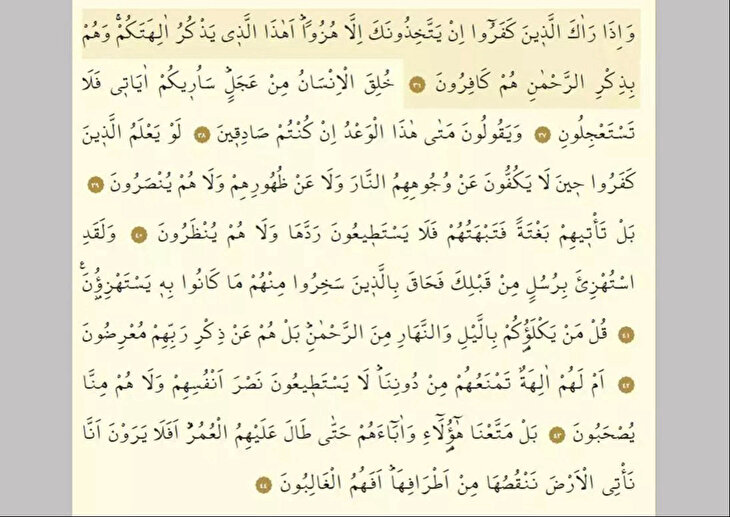 وَاِذَا رَاٰكَ الَّذٖينَ كَفَرُٓوا اِنْ يَتَّخِذُونَكَ اِلَّا هُزُواًؕ اَهٰذَا الَّذٖي يَذْكُرُ اٰلِهَتَكُمْۚ وَهُمْ
بِذِكْرِ الرَّحْمٰنِ هُمْ كَافِرُونَ ﴿٣٦﴾ خُلِقَ الْاِنْسَانُ مِنْ عَجَلٍؕ سَاُرٖيكُمْ اٰيَاتٖي فَلَا
تَسْتَعْجِلُونِ ﴿٣٧﴾ وَيَقُولُونَ مَتٰى هٰذَا الْوَعْدُ اِنْ كُنْتُمْ صَادِقٖينَ ﴿٣٨﴾ لَوْ يَعْلَمُ الَّذٖينَ
كَفَرُوا حٖينَ لَا يَكُفُّونَ عَنْ وُجُوهِهِمُ النَّارَ وَلَا عَنْ ظُهُورِهِمْ وَلَا هُمْ يُنْصَرُونَ ﴿٣٩﴾
بَلْ تَأْتٖيهِمْ بَغْتَةً فَتَبْهَتُهُمْ فَلَا يَسْتَطٖيعُونَ رَدَّهَا وَلَا هُمْ يُنْظَرُونَ ﴿٤٠﴾ وَلَقَدِ
اسْتُهْزِئَ بِرُسُلٍ مِنْ قَبْلِكَ فَحَاقَ بِالَّذٖينَ سَخِرُوا مِنْهُمْ مَا كَانُوا بِهٖ يَسْتَهْزِؤُ۫نَࣖ
﴿٤١﴾ قُلْ مَنْ يَكْلَؤُ۬كُمْ بِالَّيْلِ وَالنَّهَارِ مِنَ الرَّحْمٰنِؕ بَلْ هُمْ عَنْ ذِكْرِ رَبِّهِمْ مُعْرِضُونَ
﴿٤٢﴾ اَمْ لَهُمْ اٰلِهَةٌ تَمْنَعُهُمْ مِنْ دُونِنَاؕ لَا يَسْتَطٖيعُونَ نَصْرَ اَنْفُسِهِمْ وَلَا هُمْ مِنَّا
يُصْحَبُونَ ﴿٤٣﴾ بَلْ مَتَّعْنَا هٰٓؤُ۬لَٓاءِ وَاٰبَٓاءَهُمْ حَتّٰى طَالَ عَلَيْهِمُ الْعُمُرُؕ اَفَلَا يَرَوْنَ اَنَّا
نَأْتِي الْاَرْضَ نَنْقُصُهَا مِنْ اَطْرَافِهَاؕ اَفَهُمُ الْغَالِبُونَ ﴿٤٤﴾